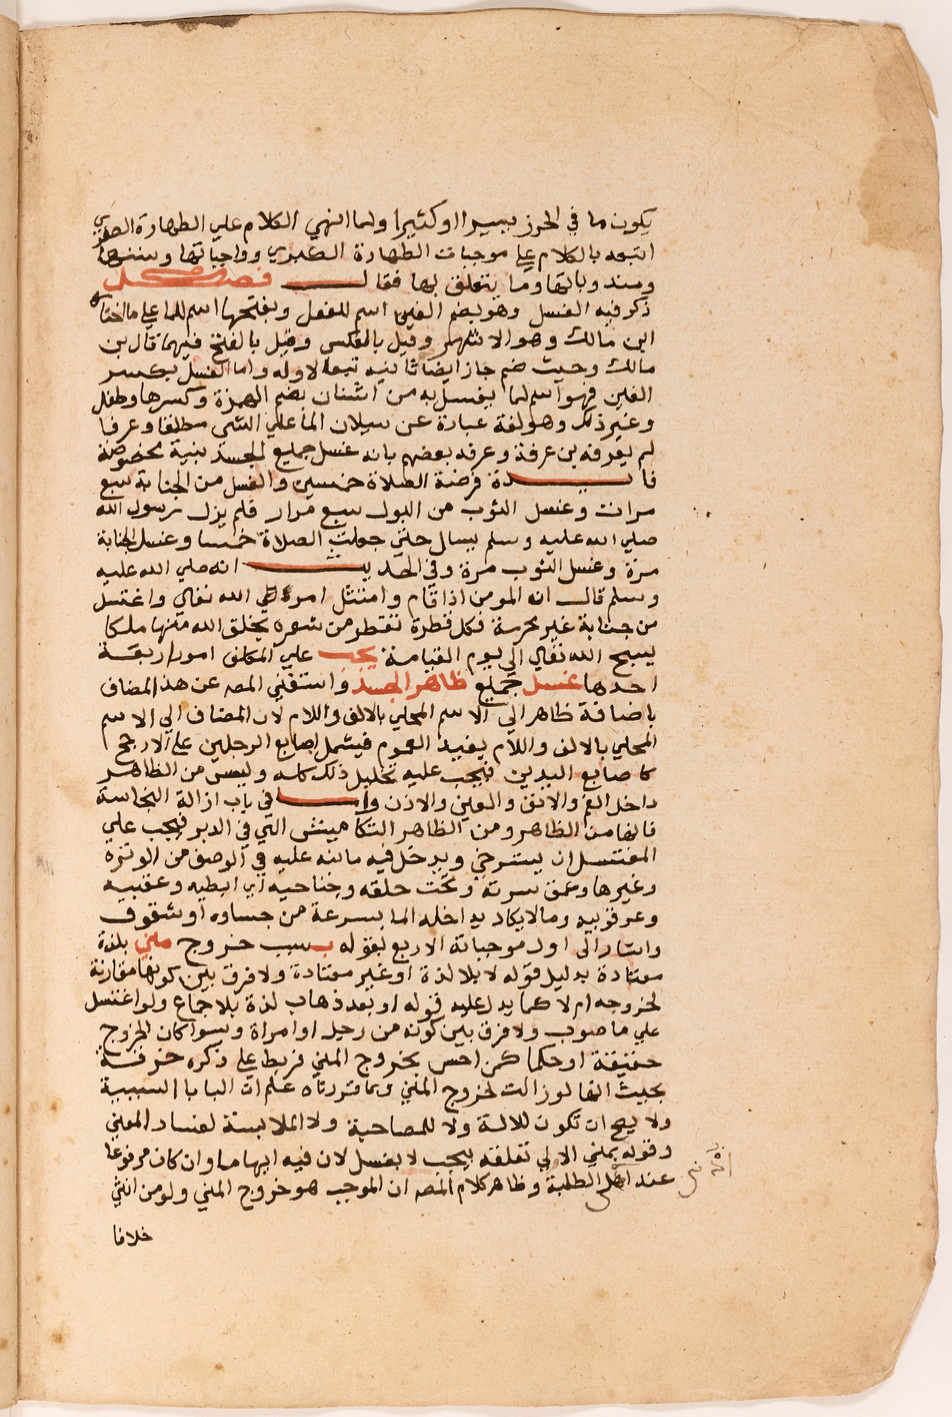 يكون ما في الحرز يسيرا او كثيرا ولما انهي الكلام علي الطهارة الصغري
اتبعه بالكلام علي موجبات الطهارة الكبري وواجباتها وسننها
ومندوباتها وما يتعلق بها فقال فصل
ذكر فيه الغسل وهو بضم الغين اسم للفعل وبفتحها اسم للما علي ما اختاره
ابن مالك وهو الاشهر وقيل بالعكس وقيل بالفتح فيهما قال بن
مالك وحيث ضم جاز ايضا ثانيه تبعا لاوله واما الغسل بكسر
الغين فهو اسم لما يغسل به من اشنان بضم الهمزة وكسرها وطفل
وغير ذلك وهو لغة عبارة عن سيلان الما علي الشي مطلقا وعرفا
لم يعرفه بن عرفة وعرفه بعضهم بانه غسل جميع الجسد بنية مخصوصة
فايدة فرضة الصلاة خمسين والغسل من الجنابة سبع
مرات وغسل الثوب من البول سبع مرار فلم يزل رسول الله
صلي الله عليه وسلم يسال حتي جعلت الصلاة خمسا وغسل الجنابة
مرة وغسل الثوب مرة وفي الحديث انه صلي الله عليه
وسلم قال ان المومن اذا قام وامتثل امر الله تعالي واغتسل
من جنابة غير محرمة فكل قطرة تقطر من شعره يخلق الله منها ملكا
يسبح الله تعالي الي يوم القيامة يجب علي المكلف امور اربعة
احدها غسل جميع ظاهر الجسد واستغني المصه عن هذا المضاف
باضافة ظاهر الي الاسم المحلي بالالف واللام لان المضاف الي الاسم
المحلي بالالف واللام يفيد العموم فيشمل اصابع الرجلين علي الارجح
كاصابع اليدين فيجب عليه تخليل ذلك كله وليس من الظاهر
داخل الفم والانف والعين والاذن واما في باب ازالة النجاسة
فانها من الظاهر ومن الظاهر التكاميش التي في الدبر فيجب علي
المغتسل ان يسترخي ويدخل فيه ما نبه عليه في الوضو من الوترة
وغيرها وعمق سرته وتحت حلقه وجناحيه اي ابطيه وعقبيه
وعرقوبيه وما لا يكاد يداخله الما بسرعة من جساوه او شقوق
واشار الي اول موجباته الاربع بقوله بسبب خروج مني بلذة
معتادة بدليل قوله لا بلا لذة او غير معتادة ولا فرق بين كونها مقارنة
لخروجه ام لا كما يدل عليه قوله او بعد ذهاب لذة بلا جماع ولو اغتسل
علي ما صوب ولا فرق بين كونه من رجل او امراة وسوا كان الخروج
حقيقة او حكما كمن احس بخروج المني فربط علي ذكره خرقة
بحيث انها لو زالت لخروج المني وبما قررناه علم ان البا با السببية
ولا يصح ان تكون للالة ولا للمصاحبة ولا الملابسة لفساد المعني
وقوله بمني الاولي تعلقه بيجب لا بغسل لان فيه ايهاما وان كان مرفوعا
عند اهل الطلبة وظاهر كلام المصه ان الموجب هو خروج المني ولو من انثي
خلافا